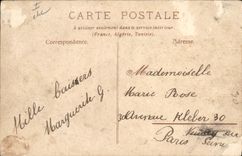 CARTE POSTALE
A utiliser seulement dans le service intérieur
(France, Algérie, Tunisie).
Correspondance.
Adresse.
Mille Baisers
Marguerite G
Mademoiselle
Marie Rose
Avenue Kleber 30
Paris